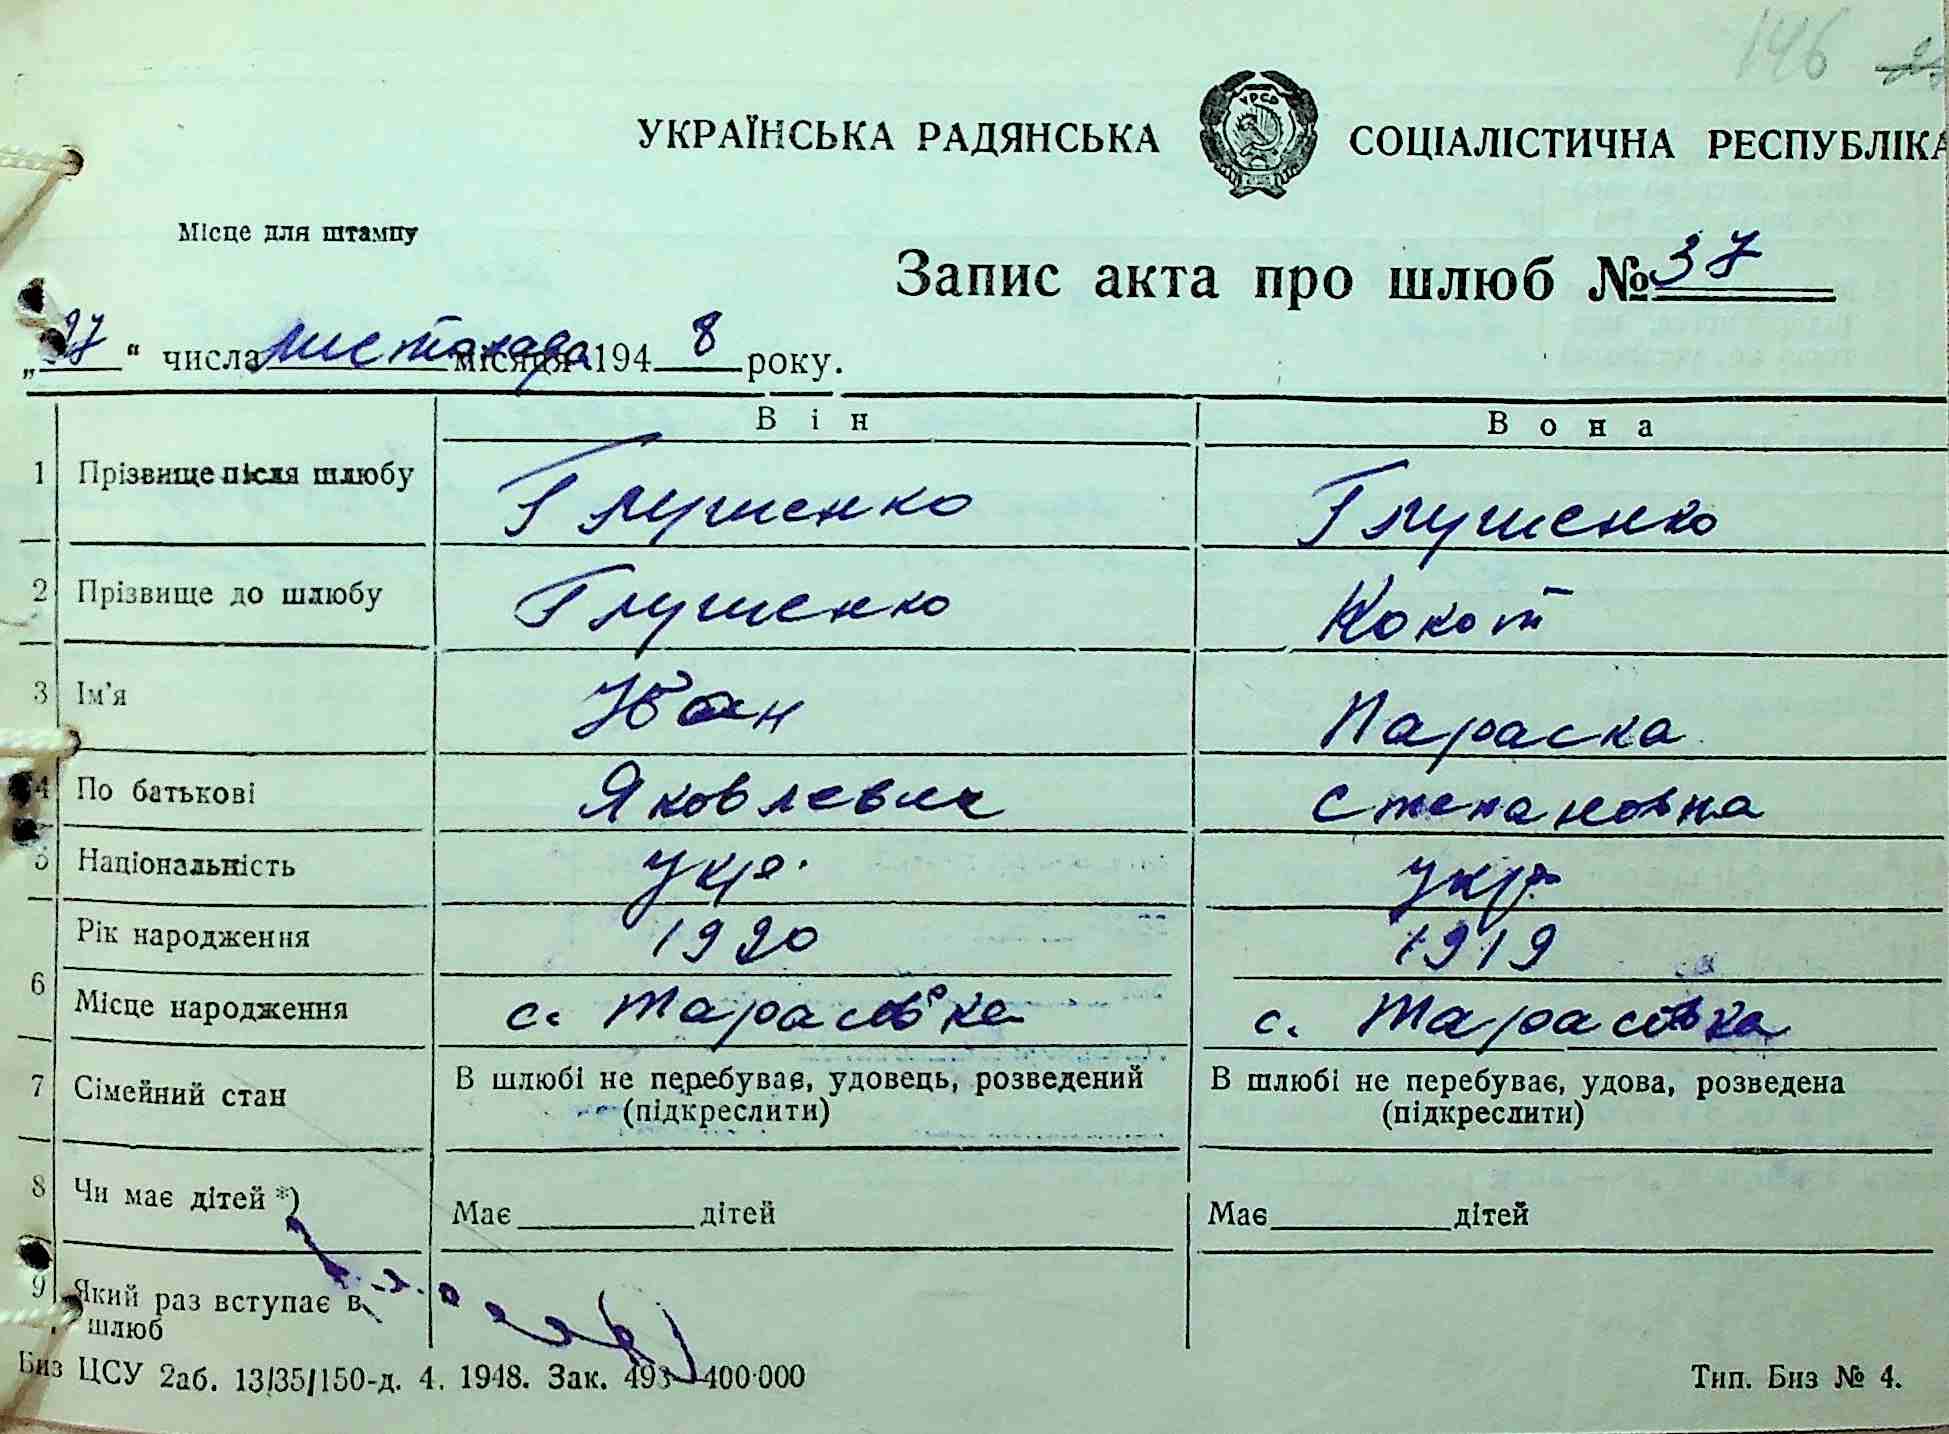 146
УКРАЇНСЬКА РАДЯНСЬКА СОЦІАЛІСТИЧНА РЕСПУБЛІКА
УРСР
Місце для штампу
Запис акта про шлюб № 37
„27“ числа листопада місяця 1948 року.
Він Вона
1 Прізвище після шлюбу Глушенко Глушенко
2 Прізвище до шлюбу Глушенко Кокот
3 Ім'я Іван Параска
4 По батькові Яковлевич Степановна
5 Національність укр. укр.
Рік народження 1920 1919
6 Місце народження с. Тарасовка с. Тарасовка
7 Сімейний стан В шлюбі не перебуває, удовець, розведений В шлюбі не перебуває, удова, розведена
(підкреслити) (підкреслити)
8 Чи має дітей *) Має дітей Має дітей
9 Який раз вступає в
шлюб
Биз ЦСУ 2аб. 13/35/150-д. 4. 1948. Зак. 493 400·000 Тип. Биз № 4.